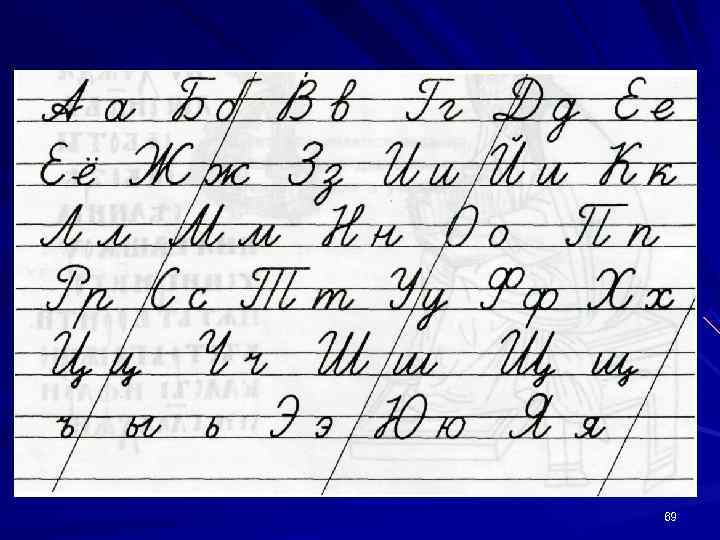 Аа Бб Вв Гг Дд Ее
Её Жж Зз Ии Йи Кк
Лл Мм Нн Оо Пп
Рр Сс Тт Уу Фф Хх
Цц Чч Шш Щщ
ъ ы ь Ээ Юю Яя
69